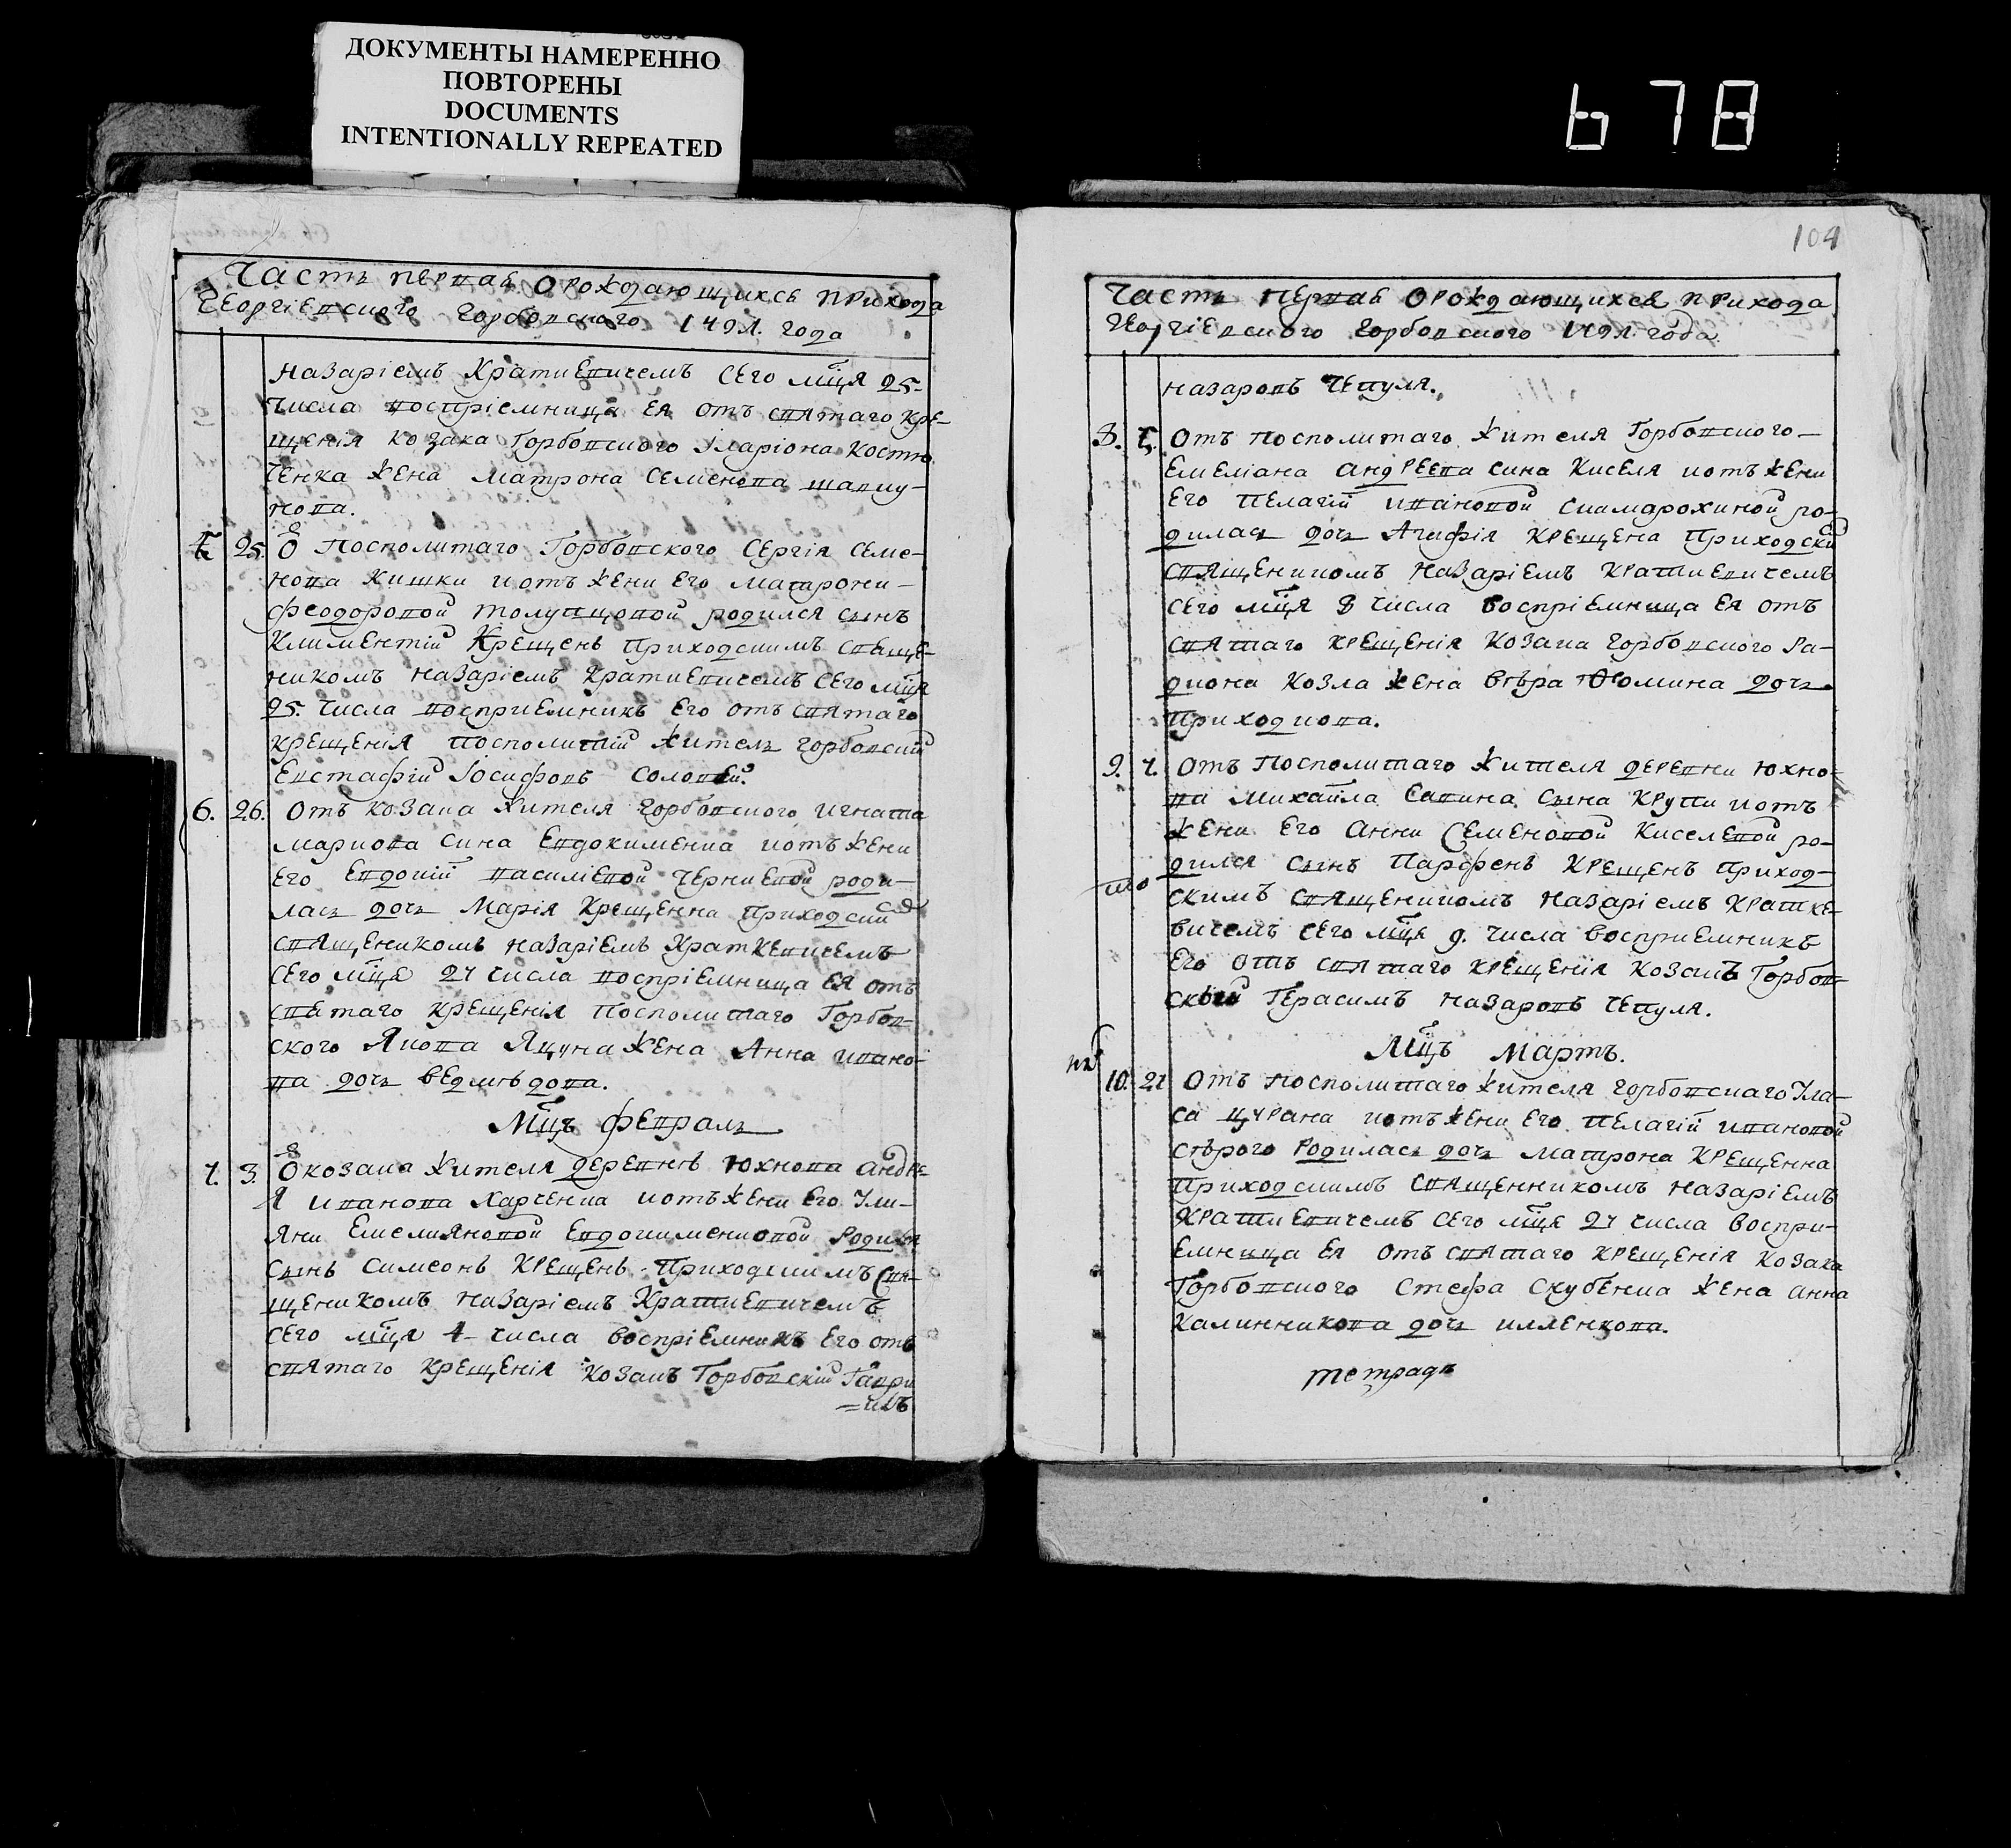 ДОКУМЕНТЫ НАМЕРЕННО
ПОВТОРЕНЫ
DOCUMENTS
INTENTIONALLY REPEATED
678
Часть первая о рождающихся прихода
Георгіевского Горбовского 1791. года
Назаріемъ Краткевичемъ сего мца 25.
числа воспріемница ея отъ святаго кре-
щенія козака Горбовского Іларіона Костю
ченка жена Матрона Семенова
нова.
5 25. О Посполитаго Горбовского Сергія Семе-
нова Кишки и отъ жени его Матрони-
Феодоровой родился сынъ
Климентій Крещенъ приходскимъ свяще-
никомъ Назаріемъ Краткевичемъ сего мця
25. числа восприемникъ его отъ святаго
крещенія посполитій житель Горбовскій
Евстафій Іосифовъ Соловей.
6. 26. Отъ козака жителя Горбовского Игната
Маркова сина Евдокименка и отъ жени
его Евдокій Василіевой Чернпевой роди-
лась дочь Марія Крещенна приходски
священикомъ Назаріемъ Краткевичемъ
сего мця 27 числа воспріемница ея отъ
святаго крещенія посполитаго Горбов-
ского Якова Яцуна жена Анна Ивано-
ва дочь Ведмѣдова.
Мцъ февраль
7. 3. О козака жителя деревнѣ Юхнова Андре
я Иванова Харченка и отъ жени его Ули-
яни Емелияновой Евдокименковой родился
сынъ Симеонъ крещенъ приходскимъ свя-
щеникомъ Назаріемъ Краткевичемъ
сего мця 4 числа воспріемникъ его отъ
святаго крещенія козакъ Горбовскій Гаври
=илъ
104
Часть первая о рождающихся прихода
Георгіевского Горбовского 1791. года
Назаровъ Чепуля.
8. 5. Отъ посполитаго жителя Горбовского-
Емеліана Андреева сина Киселя и отъ жени
его Пелагій Ивановой ро-
дилась дочь Агафія крещена приходски
священикомъ Назаріемъ Краткевичемъ
сего мця 8 числа воспріемница ея отъ
святаго крещенія козака Горбовского Ра-
диона Козла жена Вѣра Фомина дочь
Приходкова.
9. 7. Отъ посполитаго жителя деревни Юхно-
ва Михайла Савина сына Крупи и отъ
жени его Анни Семеновой Киселевой ро-
дился сынъ Парфенъ крещенъ приход-
скимъ священикомъ Назаріемъ Кратке-
вичемъ сего мця 9. числа восприемникъ
его отъ святаго крещенія козакъ Горбов-
ский Герасимъ Назаровъ Чепуля.
Мцъ Мартъ.
10. 21 Отъ посполитаго жителя Горбовскаго Ула-
са Цурана и отъ жени его Пелагій Ивановой
Сѣрого родилась дочь Матрона крещенна
приходскимъ священникомъ Назаріемъ
Краткевичемъ сего мця 27 числа воспри-
емница ея отъ святаго крещенія козака
Горбовского Стефа Скубенка жена Анна
Калинникова дочь Илленкова.
тетрадь